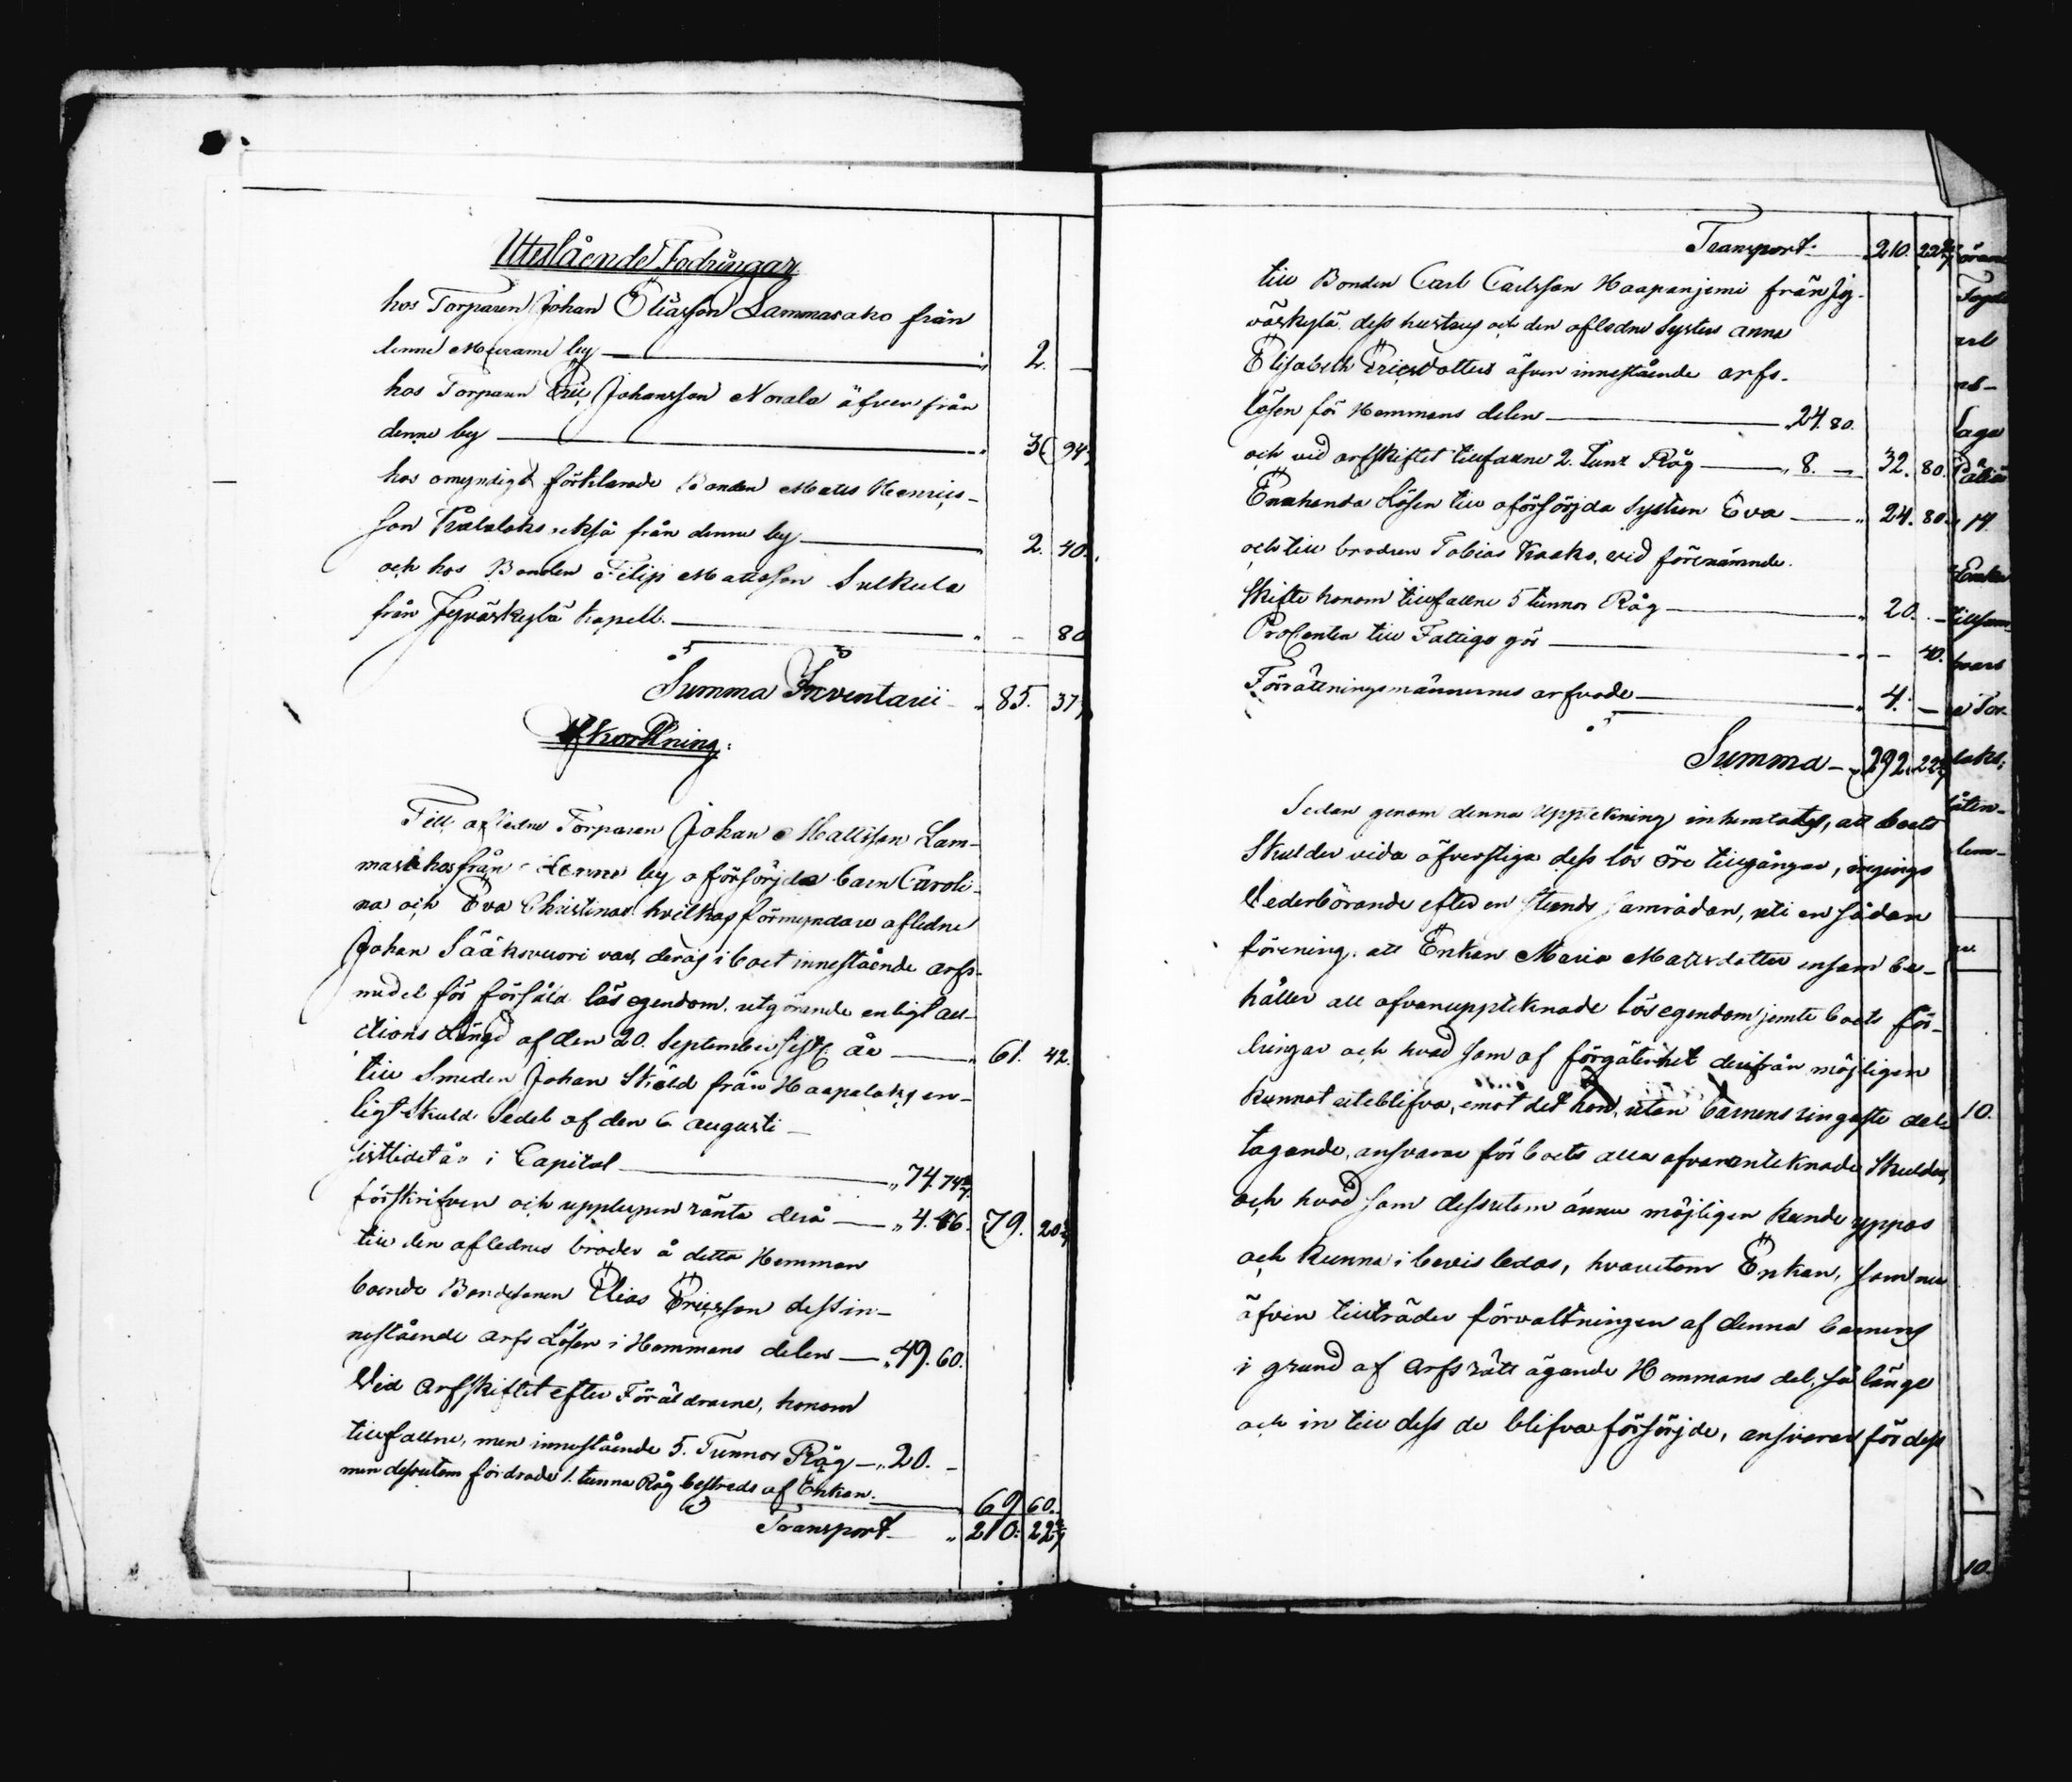 Utestående Fodringar
hos Torparen Johan Eliasson Lammasaho från
denne Muurame by — 2. —
hos Torparen Eric Johansson Norola äfven från
denne by — 36 94
hos omyndigt förklarade Bonden Matts Henrics-
son Kalalaks också från denne by — 2. 40.
och hos Bonden Filip Mattsson Sulkula
från Jyväskylä Kapell. — - 80
Summa Inventarii 85. 37
Afkortning:
Till aflidne Torparen Johan Mattsson Lam-
masahos från denne by oförsörjda barn Caroli-
na och Eva Christinas hvilkas förmyndare aflidne
Johan Sääksvuori var, deras i boet innestående arfs-
medel för försåld lösegendom, utgörande enligt auc-
tions Längd af den 20. September sistl. år — 61. 42.
till Smeden Johan Sköld från Haapalaks en-
ligt Skuld Sedel af den 6 augusti
sistlidet år i Capital — „ 74. 74 2/7
förskrifven och upplupen ränta derå — „ 4. 46. 79. 20 2/7
till den aflednes broder å detta Hemman
boende Bondesonen Elias Ericsson dess in-
nestående arfs Lösen i Hemmans delen — „ 49. 60.
Vid Arfskiftet efter Föräldrarne, honom
tillfallne, men innestående 5. Tunnor Råg — „ 20. –
men dessutom fordrade 1. tunna Råg bestreds af Enkan. — 69 60.
Transport „ 210. 22 2/7
Transport 210. 22 2/7
till Bonden Carl Carlsson Haapanjemi från Jy-
väskylä, dess hustrus och den aflednes Systers Anna
Elisabeth Ericsdotters äfven innestående arfs-
lösen för Hemmans delen — 24. 80.
och vid arfskiftet tillfallne 2. Tunr Råg — „ 8. — 32. 80.
Enahanda Lösen till oförsörjda Systern Eva — „ 24. 80.
och till brodren Tobias Kaaks, vid förenämnde
Skifte honom tillfallne 5 tunnor Råg — „ 20. –
Procenten till Fattige gör — „ – 40.
Förrättningsmännernes arfvode — „ 4. —
Summa — „ 292. 22 2/7
Sedan genom denna Uppteckning inhemtades, att boets
Skulder vida öfverstiga dess lös öre tillgångar, ingingo
Vederbörande efter en stunds samrådan, uti en sådan
förening, att Enkan Maria Mattsdotter ensam be-
håller all ofvanupptecknade lösegendom jemte boets för-
dringar och hvad som af förgätenhet derifrån möjligen
kunnat uteblifva, emot det hon, utan barnens ringaste del-
tagande, ansvarar för boets alla ofvanantecknade Skulder,
och hvad som dessutom ännu möjligen kunde yppas
och kunna i bevis ledas, hvarutom Enkan, som nu
äfven tillträder förvaltningen af denna barnens
i grund af arfs rätt ägande Hemmans del, så länge
och in till dess de blifva försörjde, ansvarar för dess